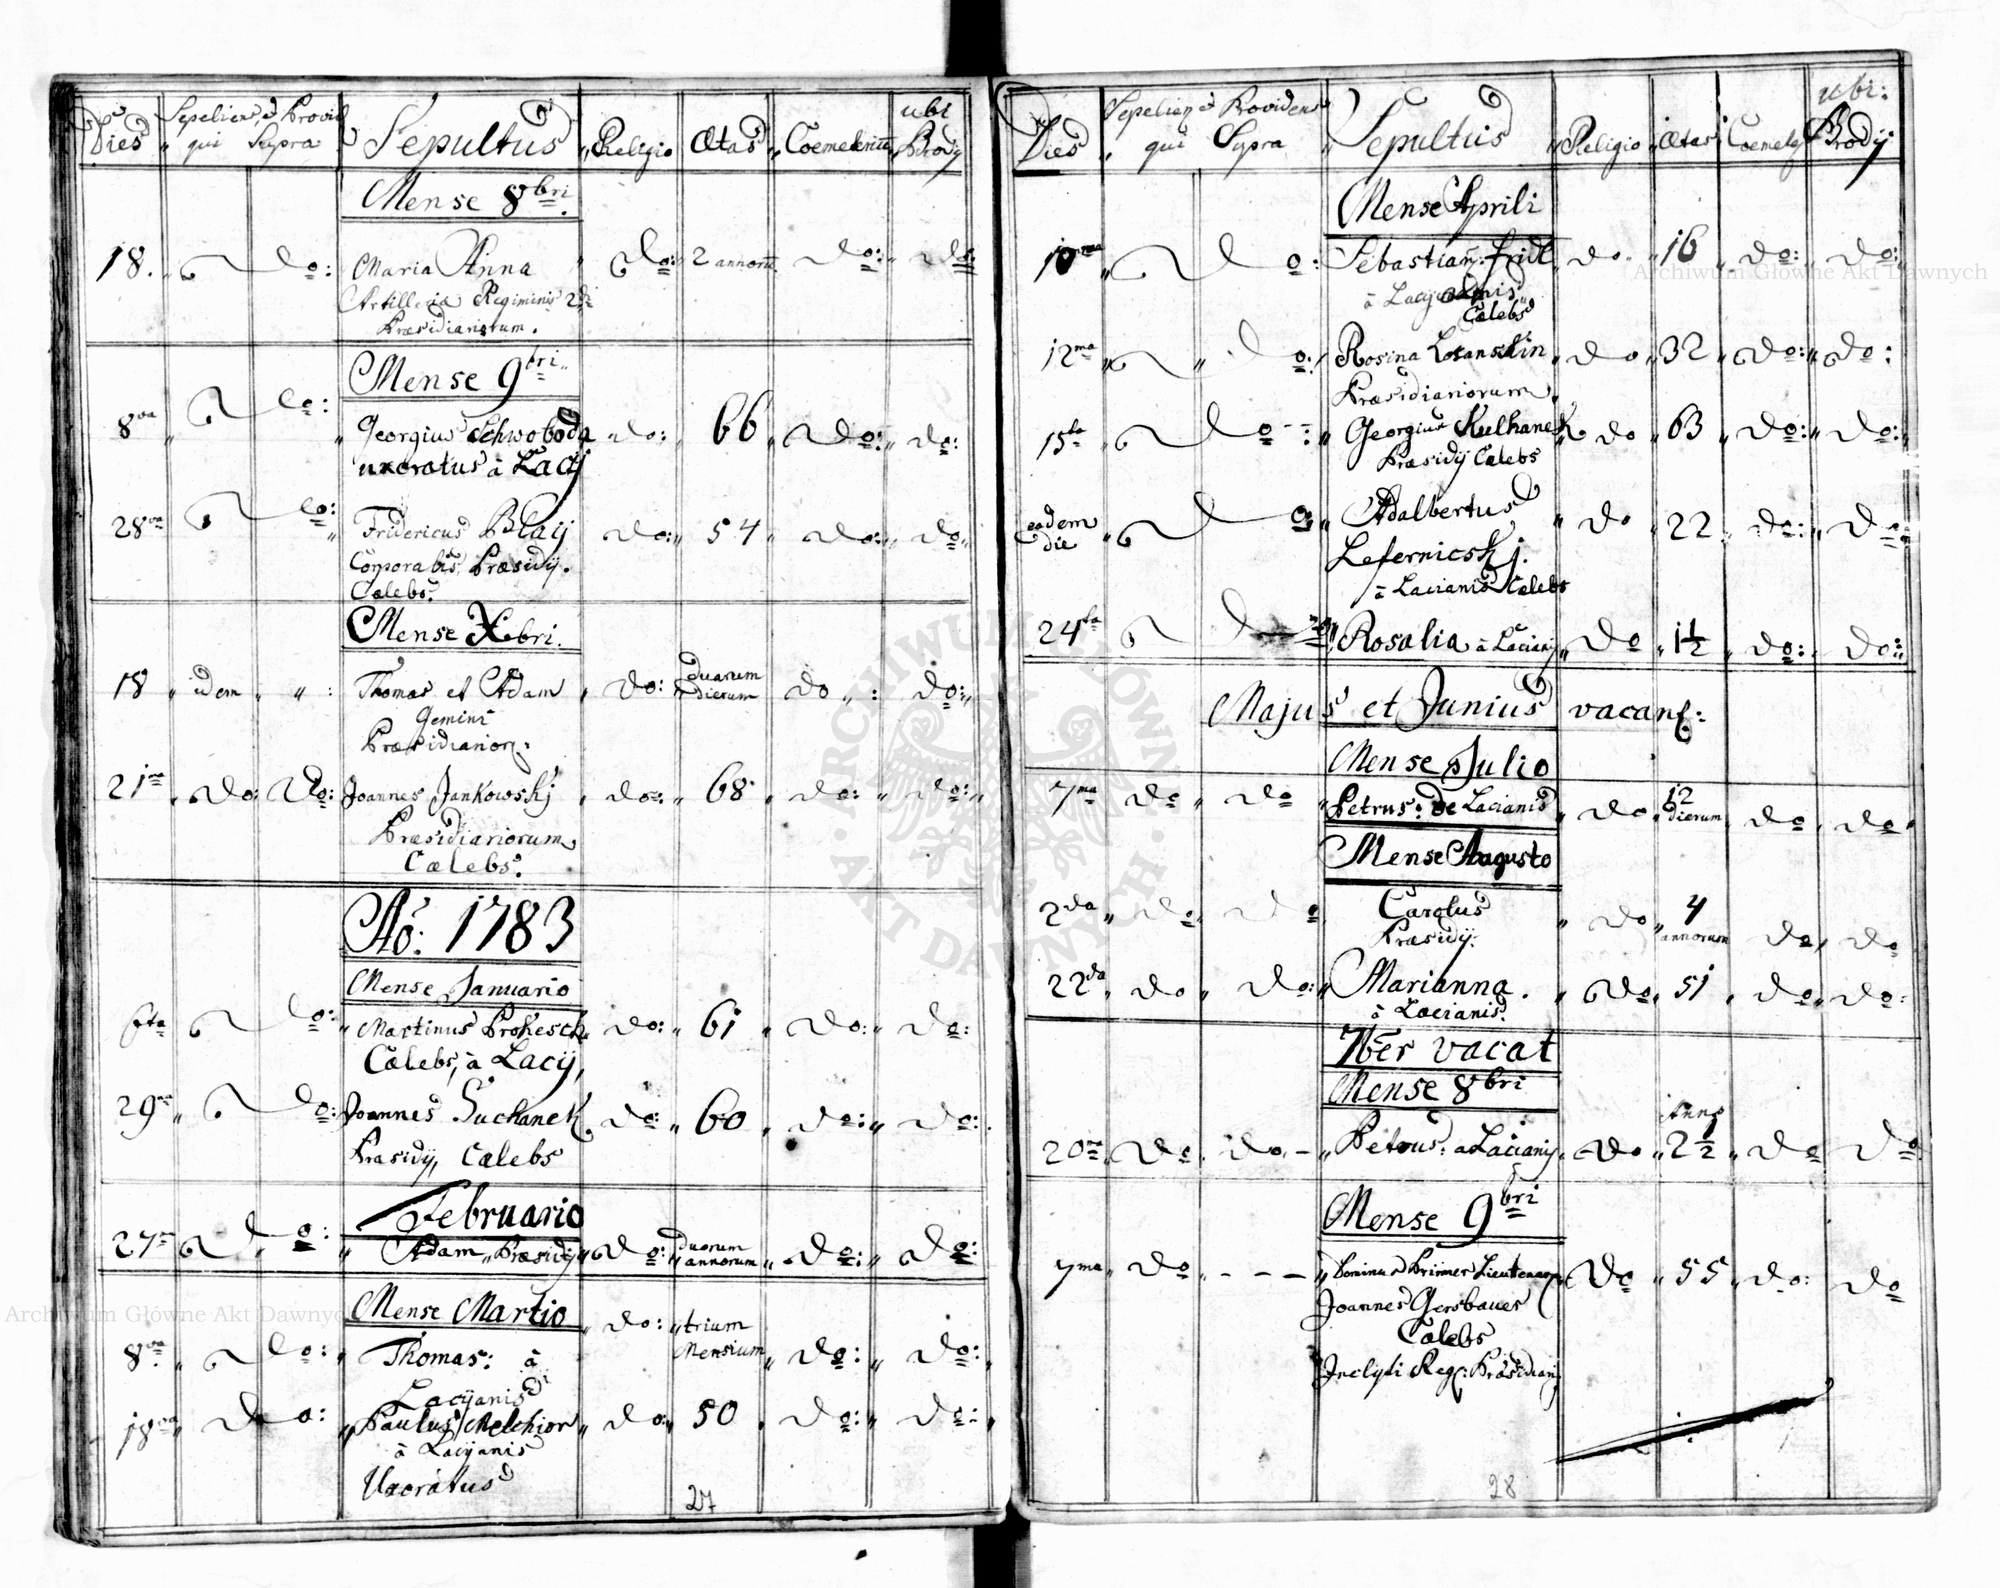 Dies Sepeliens & Provid Sepultus Religio Ætas Coemeterium ubi Brody
qui Supra
Mense 8bri.
18. Do: Maria Anna Do: 2 annorum Do: Do:
Artilleriæ Regiminis 2di
Præsidiariorum.
Mense 9bri.
8va Do: Georgius Schwoboda Do: 66 Do: Do:
uxoratus à Lacÿ
28va Do: Fridericus Blaÿ Do: 54 Do: Do:
Corporalis Præsidÿ.
Cælebs.
Mense Xbri.
18 idem " : Thomas et Adam Do: duarum dierum Do : Do:
Gemini
Præsidiarior:
21ma Do: Do: Joannes Jankowskj Do: 68 Do: Do:
Præsidiariorum
Cælebs.
Aõ: 1783
Mense Januario
6ta Do: Martinus Prokesch Do: 61 Do: Do:
Cælebs, à Lacÿ,
29na Do: Joannes Suchanek Do: 60 Do: Do:
Præsidÿ, Cælebs
Februario
27ma Do: Adam Præsidÿ Do: duorum annorum Do: Do:
Mense Martio
8va Do: Thomas: à Do: trium Mensium Do: Do:
Lacÿanis
18va Do: Paulus Melchior Do: 50 Do: Do:
à Lacÿanis
Uxoratus
27
Dies Sepeliens & Providens Sepultus Religio Ætas Coemet ubi: Brodÿ
qui Supra
Mense Aprili
10ma Do: Sebastian: Fridl Do. 16 Do: Do:
à Lacyanis
Cælebs
12ma Do: Rosina Losanskin Do 32 Do: Do:
Præsidiariorum
15ta Do : Georgius Kulhanek Do 63 Do: Do:
Præsidÿ Cælebs
eadem die Do Adalbertus Do 22 Do: Do:
Lefernicskj.
à Lacianis Cælebs
24ta Do Rosalia à Lacianÿ Do 1½ Do: Do:
Majus et Junius vacant:
Mense Julio
7ma Do Do Petrus: de Lacianis Do 12 dierum Do Do
Mense Augusto
2da Do Do Carolus Do 4 annorum Do Do
Præsidÿ.
22da Do Do: Marianna. Do 51 Do Do:
à Lacianis.
7bēr vacat
Mense 8bri
20ma Do Do - Petrus: a Lacianÿ Do 2½ Do Do
Mense 9bri
7ma Do - - - Dominus Primer Lieutenant Do 55 Do: Do
Joannes Gersbauer
Cælebs
Inclyti Reg: Præsidiarÿ
28
Archiwum Główne Akt Dawnych
Archiwum Główne Akt Dawnych
ARCHIWUM GŁÓWNE · AKT DAWNYCH ·